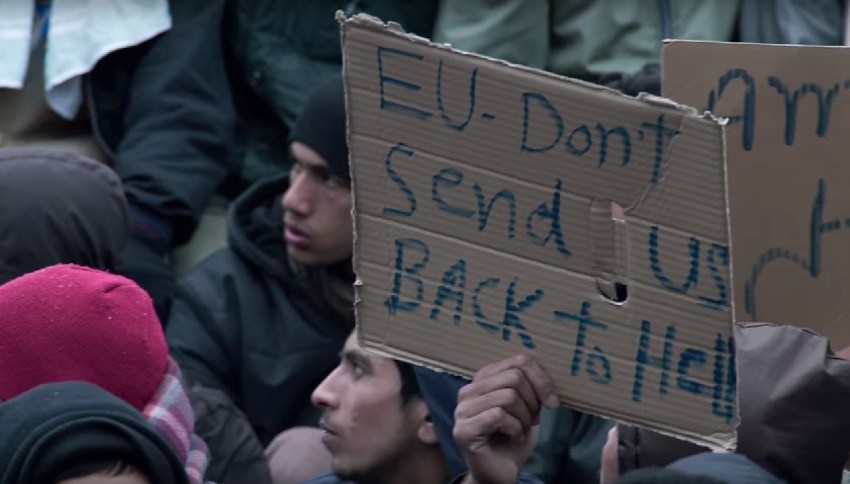 EU - Don't
Send us
BACK to Hell